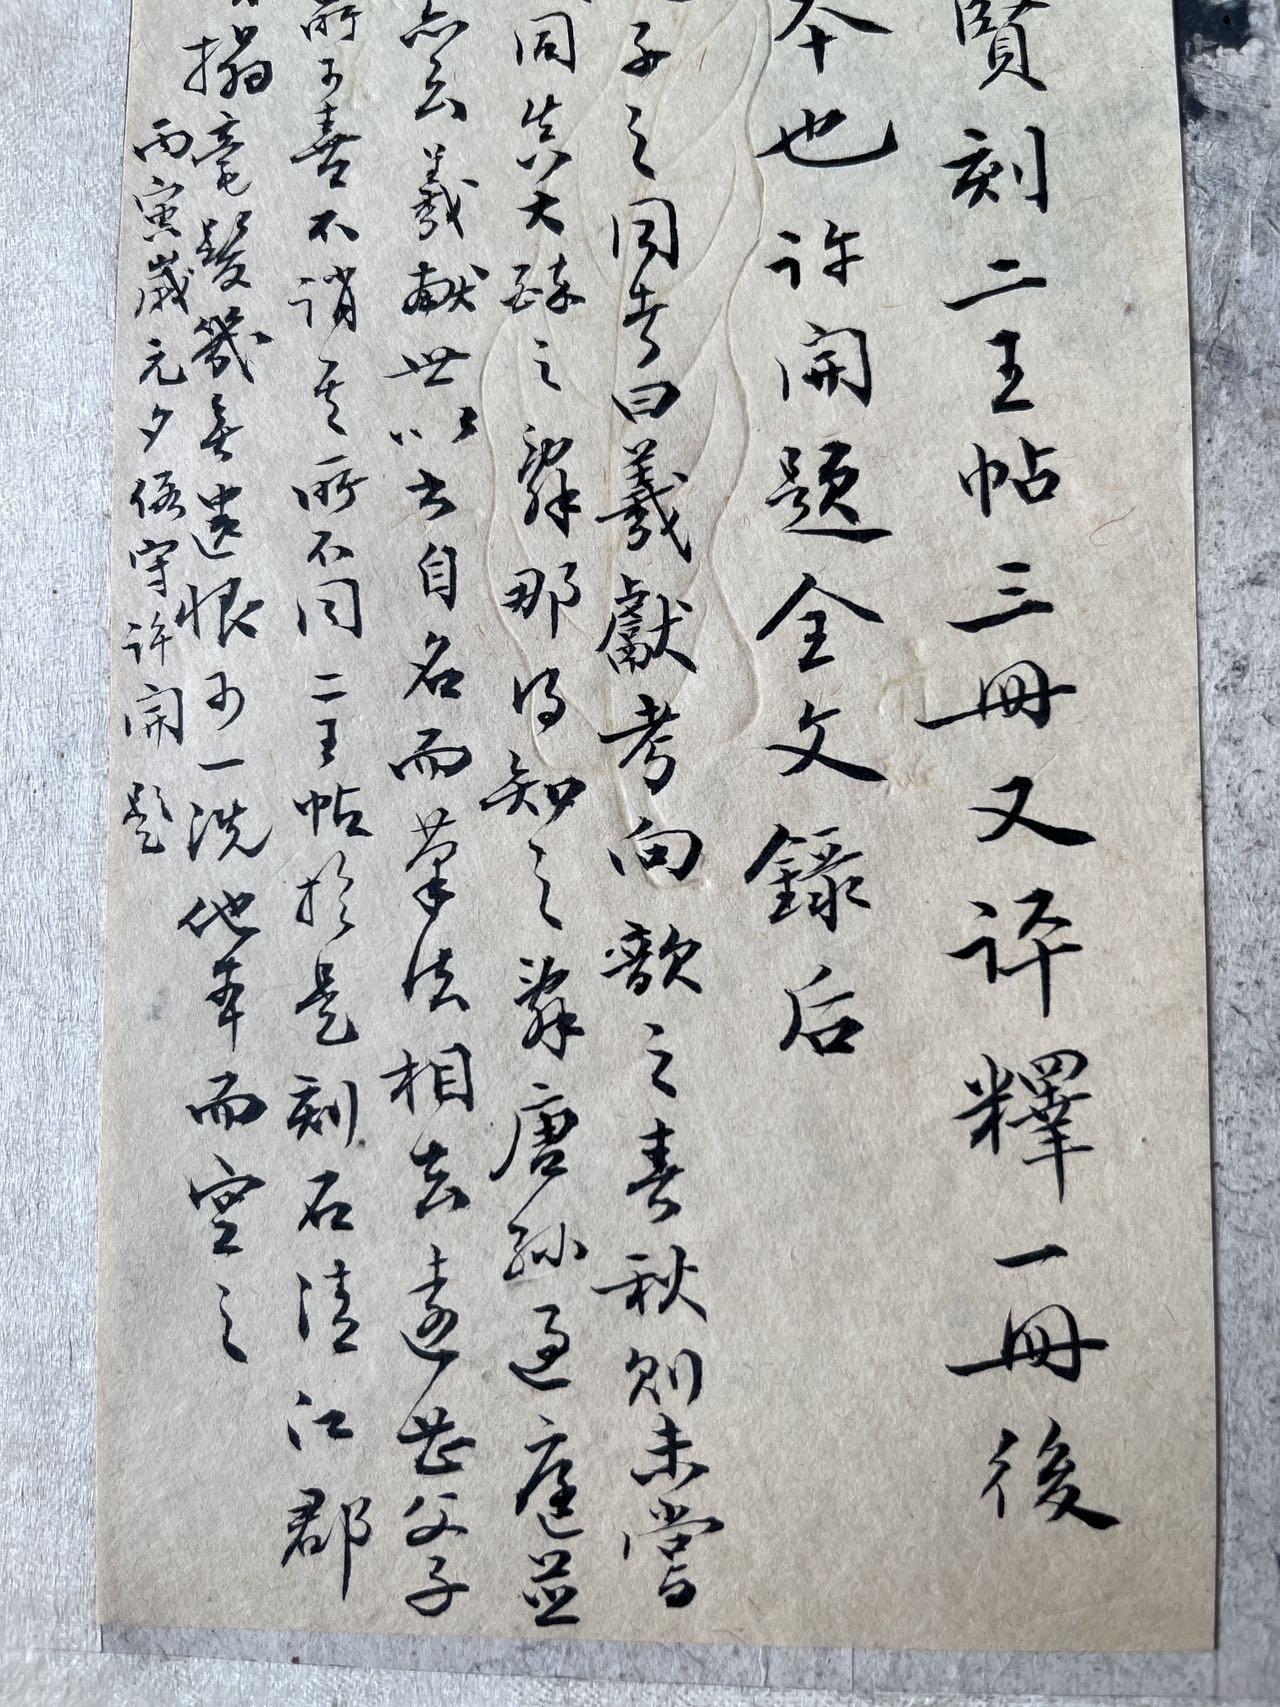 賢刻二王帖三冊又評釋一冊後
本也許開題全文錄后
子之同者曰羲獻考向歆之春秋則未嘗
同其大醉之辭那得知之辭唐孫過庭並
云羲獻世以書自名而筆法相去遠甚父子
所不喜不誚其所不同二王帖於是刻石清江郡
搨毫髮幾無遺恨可一洗他本而空之
丙寅歲元夕假守許開題